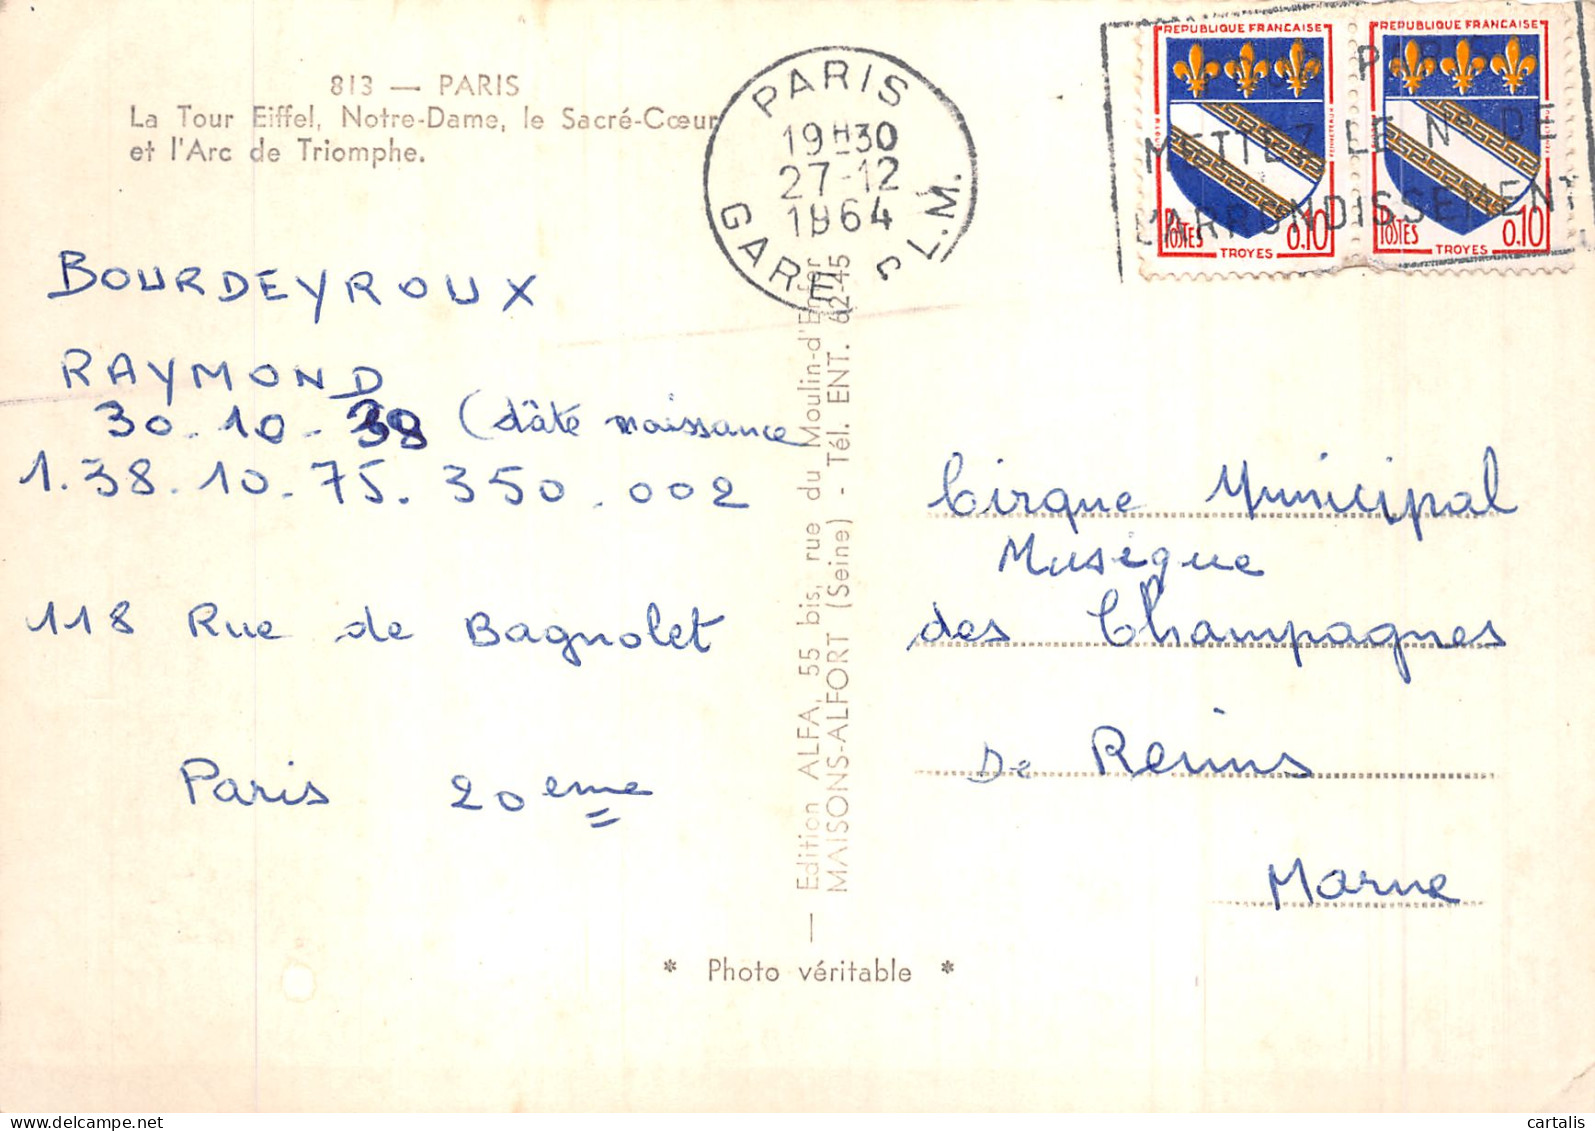 813 — PARIS
La Tour Eiffel, Notre-Dame, le Sacré-Cœur
et l'Arc de Triomphe.
PARIS
19H30
27-12
1964
GARE P.L.M.
REPUBLIQUE FRANCAISE
POSTES
TROYES
0,10
REPUBLIQUE FRANCAISE
POSTES
TROYES
0,10
PARIS
METTEZ LE N° DE
L'ARRONDISSEMENT
BOURDEYROUX
RAYMOND
30.10.38 (dâté naissance
1.38.10.75.350.002
118 Rue de Bagnolet
Paris 20eme
— Edition ALFA, 55 bis, rue du Moulin-d'Enfer —
MAISONS-ALFORT (Seine) - Tél. ENT. 62-45
Cirque Municipal
Musique
des Champagnes
De Reims
Marne
* Photo véritable *
cartalis delcampe.net